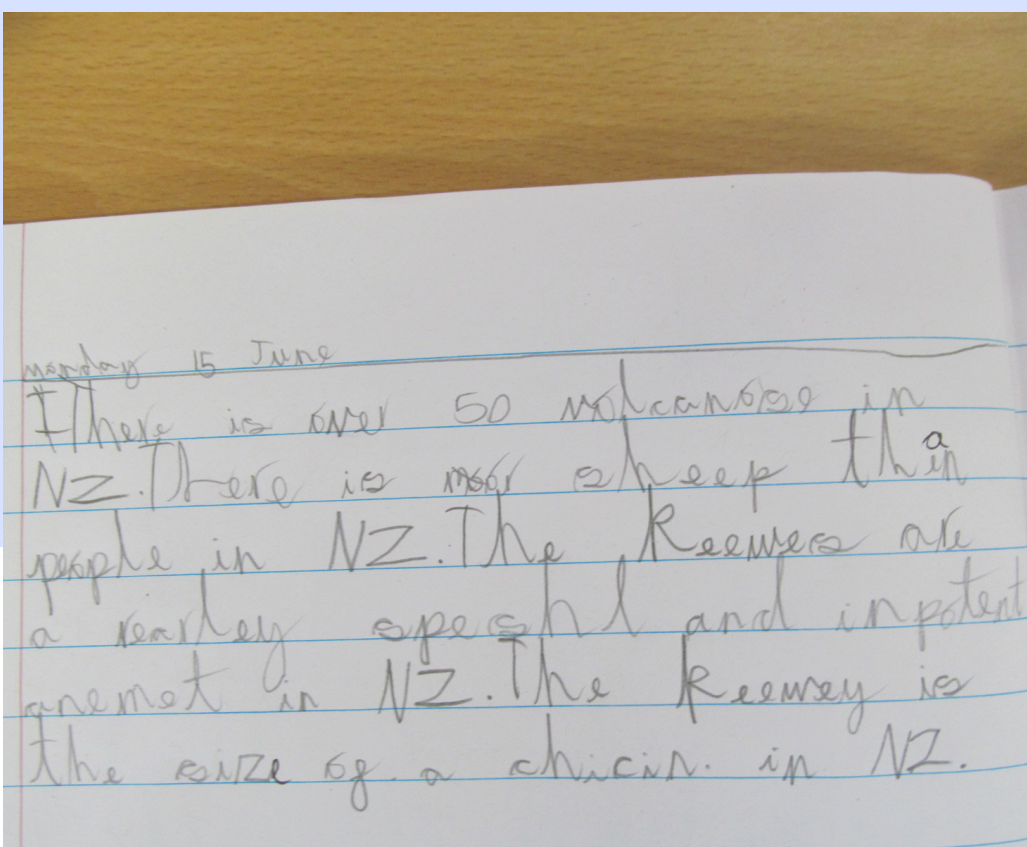 monday 15 June
There is over 50 volcanose in
NZ.There is moor sheep than
people in NZ.The Keewes are
a rearley speshl and inpotent
anemet in NZ.The Keewey is
the size of a chicin. in NZ.